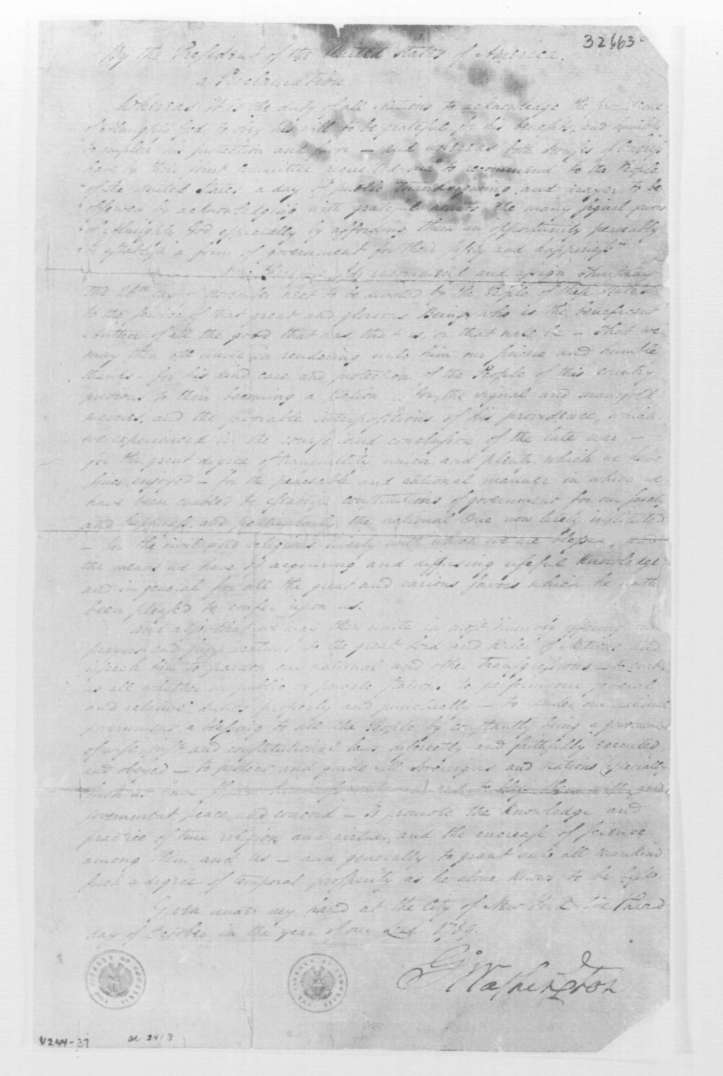 32663
By the President of the United States of America.
a Proclamation
Whereas it is the duty of all Nations to acknowledge the
of Almighty God, to obey his will, to be grateful for his benefits, and humbly
to implore his protection and favor — and whereas both Houses of Congress
have by their joint Committee requested me to recommend to the People
of the United States a day of public thanksgiving and prayer to be
observed by acknowledging with grateful hearts the many signal favors
of Almighty God especially by affording them an opportunity peaceably
to establish a form of government for their safety and happiness
Now Therefore I do recommend and assign Thursday
the 26th day of November next to be devoted by the People of these States
to the service of that great and glorious Being, who is the beneficent
Author of all the good that was, that is, or that will be — That we
may then all unite in rendering unto him our sincere and humble
thanks — for his kind care and protection of the People of this country
previous to their becoming a Nation — for the signal and manifold
mercies, and the favorable interpositions of his providence, which
we experienced in the course and conclusion of the late war —
for the great degree of tranquillity, union, and plenty, which we have
since enjoyed — for the peaceable and rational manner in which we
have been enabled to establish constitutions of government for our safety
and happiness, and particularly the national One now lately instituted
— for the civil and religious liberty with which we are blessed,
the means we have of acquiring and diffusing useful knowledge
and in general for all the great and various favors which he hath
been pleased to confer upon us.
And also that we may then unite in most humbly offering our
prayers and supplications to the great Lord and Ruler of Nations and
beseech him to pardon our national and other transgressions — to enable
us all, whether in public or private stations, to perform our several
and relative duties properly and punctually — to render our national
government a blessing to all the People, by constantly being a government
of wise, just and constitutional laws, discreetly and faithfully executed
and obeyed — to protect and guide all Sovereigns and Nations (especially
such as have shown kindness unto us) and to bless them with good
government, peace, and concord — To promote the knowledge and
practice of true religion and virtue, and the encrease of science
among them and us — and generally to grant unto all Mankind
such a degree of temporal prosperity as he alone knows to be best.
Given under my hand at the City of New York the third
day of October in the year of our Lord 1789.
Go Washington
V244-37